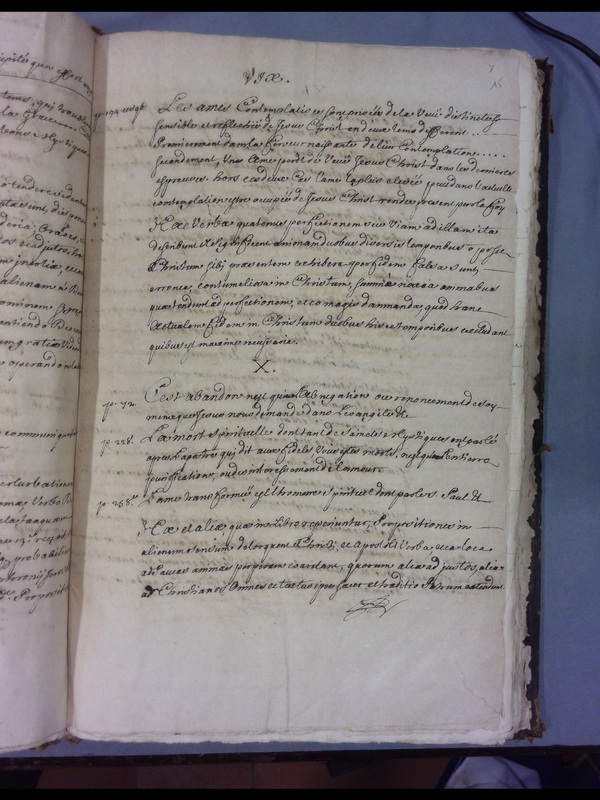 VIX.
Les ames Contemplatives sont privées de la Veüe distincte
sensible et reflechie de Jesus Christ en deux tems differens.
Premierement dans la ferveur naissante de leur Contemplation.....
secondement, Une ame perd de Veüe Jesus Christ dans les dernieres
espreuves. hors ces deux Cas l'ame la plus elevée peut dans l'actuelle
contemplation estre occupée de Jesus Christ rendu present par la foy
Hæc Verba quatenus perfectionem seu Viam ad illam ita
describunt et significent animam duobus diversis temporibus non posse
Christum sibi præsentem exhibere per fidem falsa sunt
erronea, contumeliosa in Christum, summè noxia animabus
quæ tendunt ad perfectionem, et eo magis damnanda, quod hanc
actualem fidem in Christum duobus his et temporibus excludant
quibus est maximè necessaria.
X.
p. 72. Cest abandon nest que l'abnegation ou renoncement de soy
mesme que Jesus nous demande dans l'evangile &c
p. 228. La mort spirituelle dont tant de saincts Mystiques ont parlé
apres l'apostre qui dit aux fideles Vous estes morts, nest que l'entiere
purification, ou desinteressement de l'amour.
p. 258. L'ame transformée est l'homme spirituel dont parle s. Paul &c
Hæ et aliæ quæ in libro reperiuntur, Propositiones in
alienum sensum detorquent Christi, et apostoli Verba, et ea loca
ad paucas animas perperam coarctant, quorum alia ad justos, alia
ad Christianos Omnes